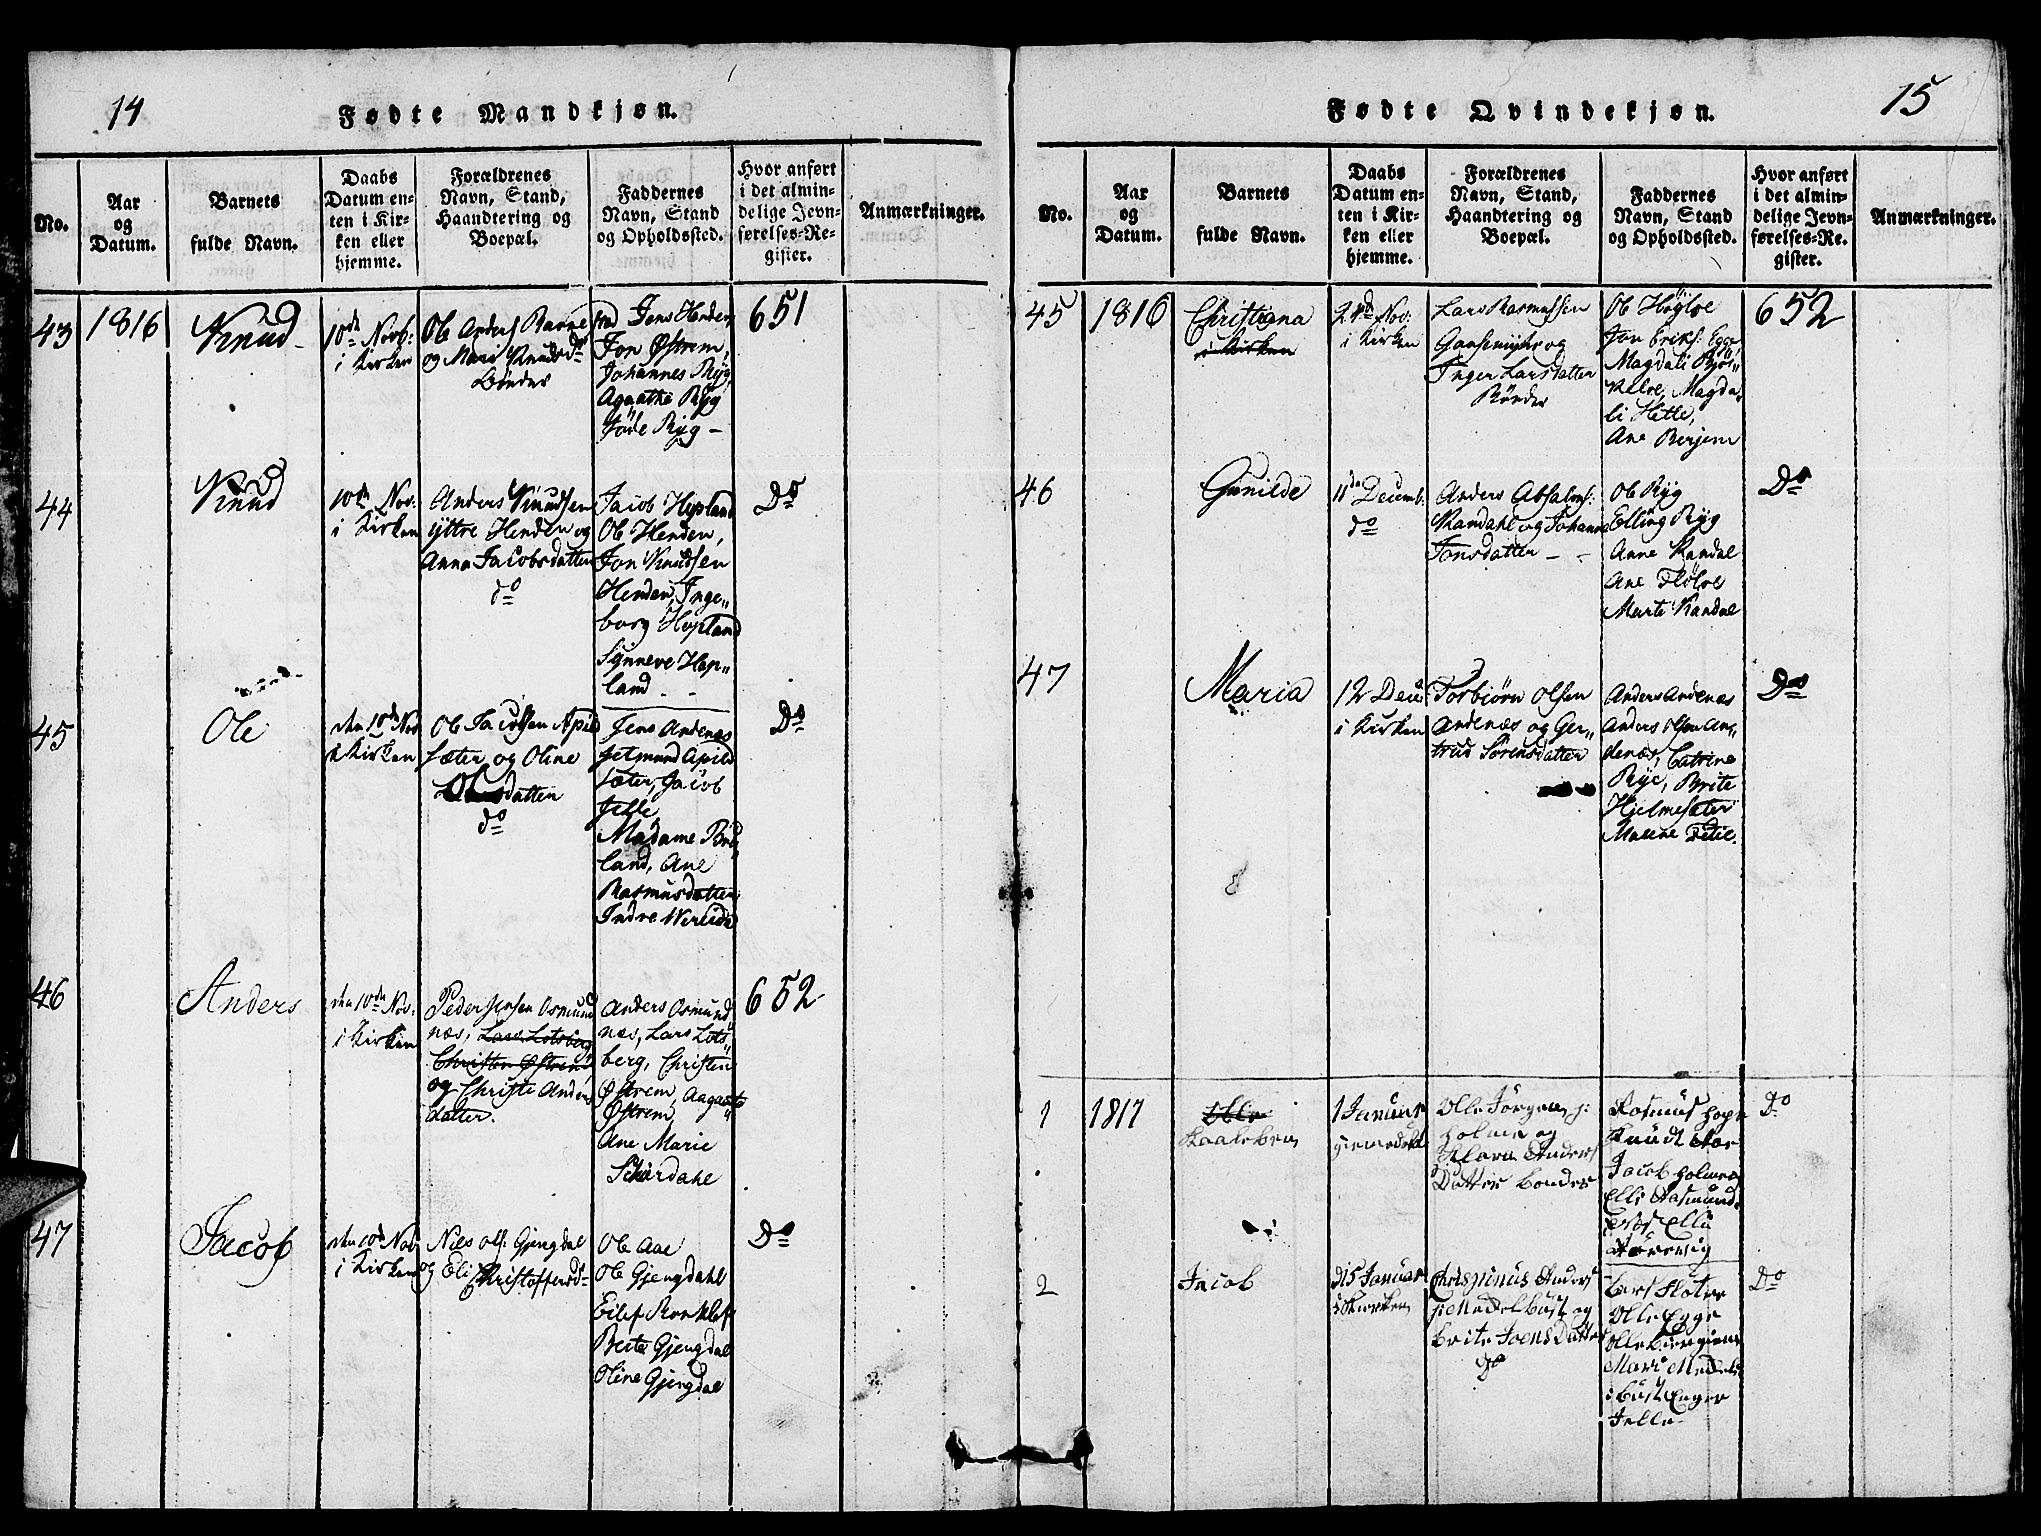 14
Fødte Mandkjøn.
No.
Aar
og
Datum.
Barnets
fulde Navn.
Daabs
Datum en-
ten i Kir-
ken eller
hjemme.
Forældrenes
Navn, Stand,
Haandtering og
Boepæl.
Faddernes
Navn, Stand
og Opholdssted.
Hvor anført
i det almin-
delige Jevn-
førelses-Re-
gister.
Anmærkninger.
43
1816
Knud
10de Novb:
i Kirken
Ole Anders
og Mari Knudsd
Bönder
Jens Henden
Jon Østrem,
Johannes Ryg
Agaathe Ryg
Ryg
651
44
Knud
10de Nov:
i Kirken
Anders Knudsen
yttre Henden og
Anna Jacobsdatter
do
Jacob Hopland
Ole Henden,
Jon Knudsen
Henden, Inge„
borg Hopland
Synneve Hop„
land
Do
45
Ole
den 10de Nov
i Kirken
Ole Jacobsen Apild
sæter og Oline
Olsdatter
do
Jens Andenæs
Getmund Apild
sæter, Jacob
Jelle
Madame Brö„
land, Ane
Rasmusdatter
Indre Wereide
Do
46
Anders
den 10de Nov:
i Kirken
Peder Jensen Osmund
næs, Lars Lotsberg
Christen Østrem
og Christi Anders
datter.
Anders Osmund
næs, Lars Lots„
berg, Christen
Østrem, Aagaate
Østrem
Ane Marie
Skiærdahl
652
47
Jacob
den 10de Nov
i Kirken
Niels Ols: Gjengdal
og Eli Christoffersd
Ole Aae
Ole Gjengdahl
Eilef Ronklef
Berte Gjengdal
Oline Gjengdal
Do
15
Fødte Qvindekjøn.
No.
Aar
og
Datum.
Barnets
fulde Navn.
Daabs
Datum en-
ten i Kir-
ken eller
hjemme.
Forældrenes
Navn, Stand,
Haandtering og
Boepæl.
Faddernes
Navn, Stand
og Opholdssted.
Hvor anført
i det almin-
delige Jevn-
førelses-Re-
gister.
Anmærkninger.
45
1816
Christiana
i Kirken
Nov:
i Kirken
Lars Rasmussen
Gaasemyhr og
Inger Larsdatter
Bönder
Ole Högloe
Jon Eriks: Egge
Magdali Bjö„
Kelve, Magda„
li Hetle,
Ane Berjem
652
46
Gunilde
11de Decemb.
do
Anders Absalons:
Randahl og Johanne
Jonsdatter
Ole Ryg
Elling Ryg
Anne Randal
Ane Flölve
Marte Randal
Do
47
Maria
12 Dec
i Kirken
Torbiørn Olsen
Andenæs og Ger„
trud Sörensdatter
Anders Andenæs
Anders Olsen An„
denæs, Catrine
Rye, Brite
Hjelmesæter
Malene
Do
1
1817
Ole
1 Januar
Olle Jörgens:
Holmen og
Klara Anders
Datter bonder
Rasmus
Knudt
Jacob Holmen
Elli
Elli
Do
2
Jacob
d 15 Januar
i Kirken
Chrispinus Anders
Medelbust og
Brite Joens Datter
do
Lars
Olle Egge
Olle Bergiem
Mari Medel
bust Enger
Jelle
Do